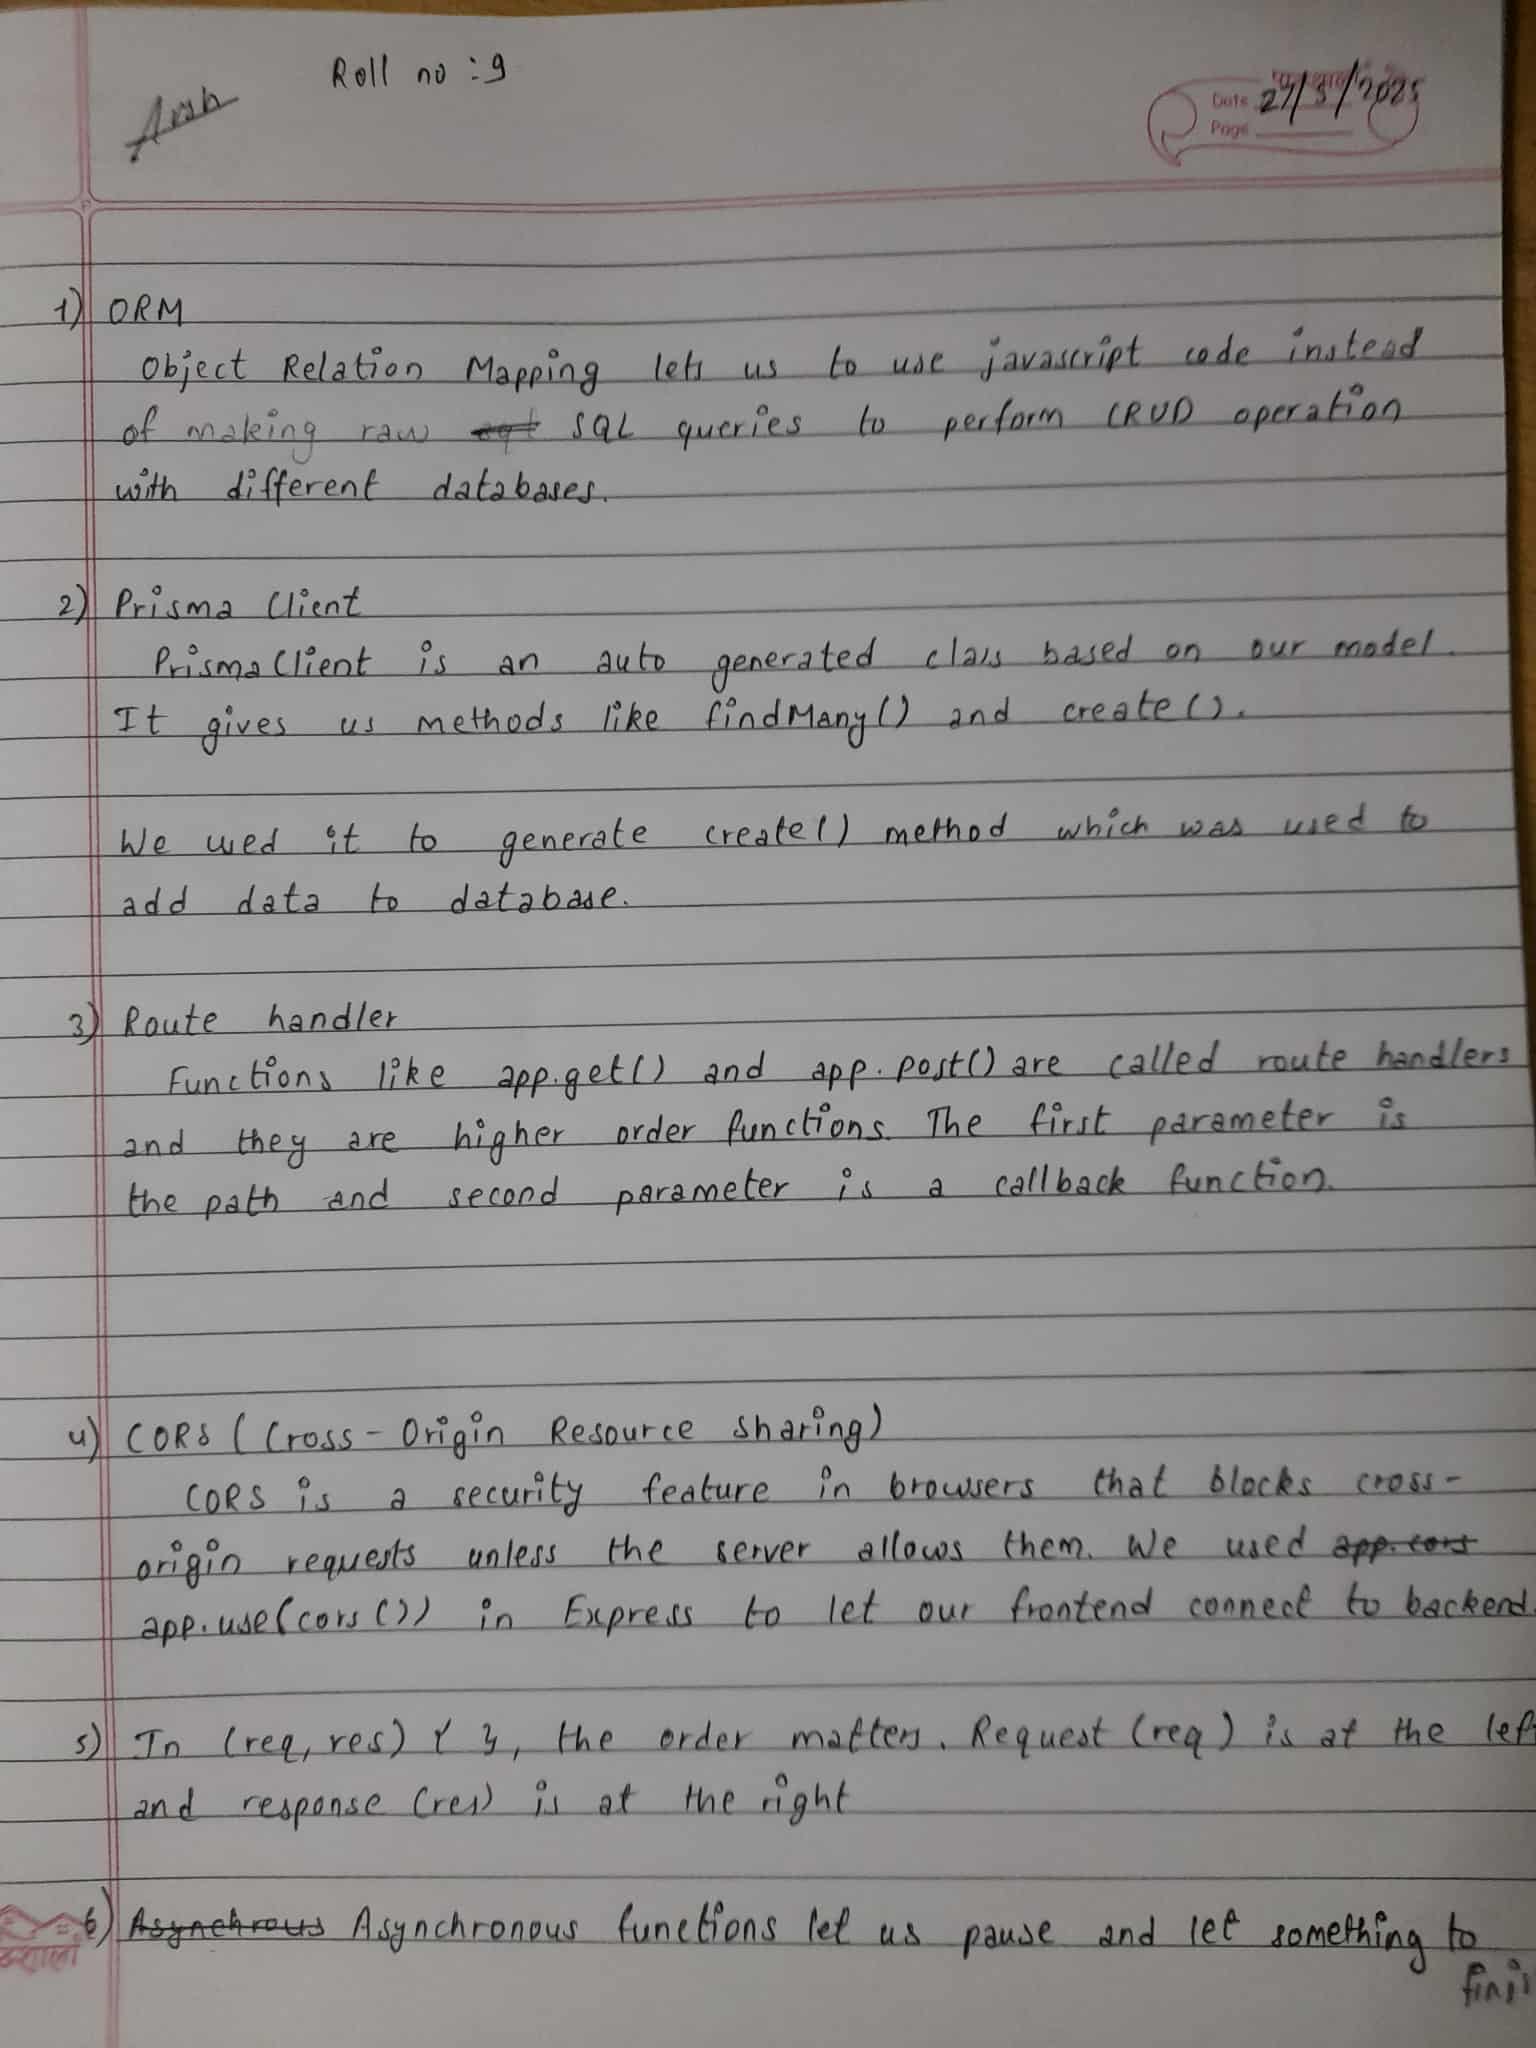 Roll no : 9
Arsh
Date 29/5/2025
Page
1) ORM
Object Relation Mapping lets us to use javascript code instead
of making raw sql SQL queries to perform CRUD operation
with different databases.
2) Prisma Client
Prisma Client is an auto generated class based on our model.
It gives us methods like findMany() and create().
We used it to generate create() method which was used to
add data to database.
3) Route handler
Functions like app.get() and app.post() are called route handlers
and they are higher order functions. The first parameter is
the path and second parameter is a callback function.
4) CORS (Cross-Origin Resource Sharing)
CORS is a security feature in browsers that blocks cross-
origin requests unless the server allows them. We used app.cors
app.use(cors()) in Express to let our frontend connect to backend.
5) In (req, res) { }, the order matters. Request (req) is at the lef
and response (res) is at the right
6) Asynchrous Asynchronous functions let us pause and let something to
finis